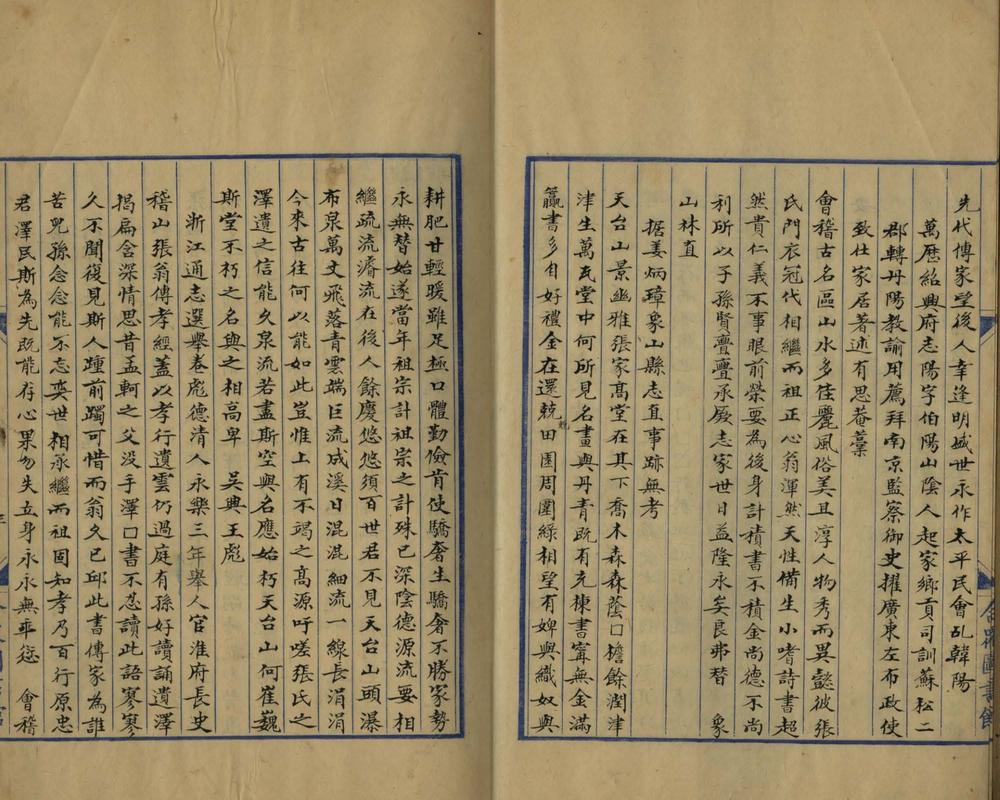 先代傳家望後人幸逢明盛世永作太平民會乩韓陽
萬歷紹興府志陽字伯陽山陰人起家鄉貢司訓蘇松二
郡轉丹陽教諭用薦拜南京監察御史擢廣東左布政使
致仕家居著述有思菴藁
會稽古名區山水多佳麗風俗美且淳人物秀而異懿彼張
氏門衣冠代相繼而祖正心翁渾然天性備生小嗜詩書超
然貴仁義不事眼前榮要為後身計積書不積金尚德不尚
利所以子孫賢亹亹承厥志家世日益隆永矣良弗替 象
山林直
据姜炳璋象山縣志直事跡無考
天台山景幽雅張家髙堂在其下喬木森森蔭口檐餘潤津
津生萬瓦堂中何所見名畫與丹青既有充棟書寧無金滿
籯書多自好禮金在還兢田園周圍綠相望有婢與織奴與
耕肥甘輕暖雖足極口體勤儉肯使驕奢生驕奢不勝家勢
永無替始遂當年祖宗計祖宗之計殊已深陰德源流要相
繼疏流濬流在後人餘慶悠悠須百世君不見天台山頭瀑
布泉萬丈飛落青雲端巨流成溪日混混細流一線長涓涓
今來古往何以能如此豈惟上有不竭之髙源吁嗟張氏之
澤遺之信能久泉流若盡斯空興名應始朽天台山何崔巍
斯堂不朽之名與之相高卑 吳興王彪
浙江通志選舉卷彪德清人永樂三年舉人官淮府長史
稽山張翁傳孝經蓋以孝行遺雲仍過庭有孫好讀誦遺澤
揭扁含深情思昔孟軻之父没手澤口書不忍讀此語寥寥
久不聞復見斯人踵前躅可惜而翁久已邱此書傳家為誰
苦兒孫念念能不忘奕世相承繼而祖固知孝乃百行原忠
君澤民斯為先既能存心果勿失立身永永無乖愆 會稽